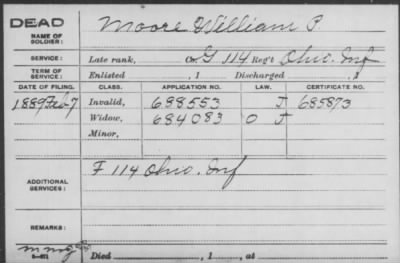 DEAD
NAME OF SOLDIER: Moore William P.
SERVICE: Late rank, Co. G 114 Reg't Ohio. Inf
TERM OF SERVICE: Enlisted , 1 Discharged , 1
DATE OF FILING. CLASS. APPLICATION NO. LAW. CERTIFICATE NO.
1889 Feb-7 Invalid, 688553 J 685873
Widow, 684083 O J
Minor,
ADDITIONAL SERVICES: F 114 Ohio. Inf
REMARKS:
Died , 1 , at